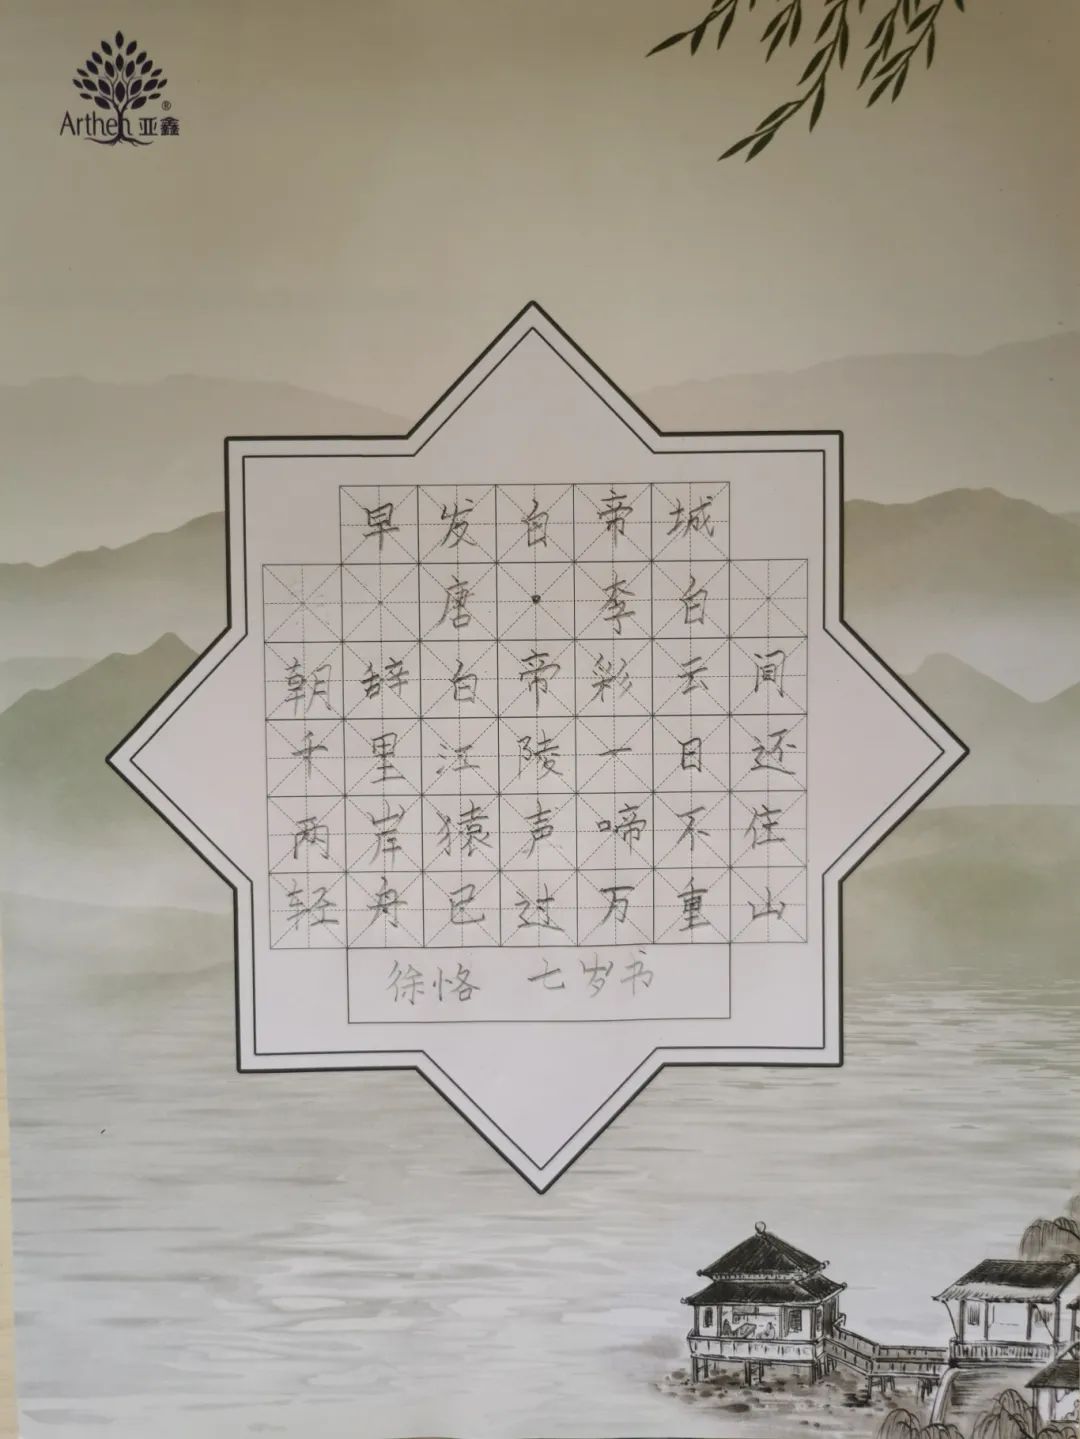 Arthen 亚鑫®
早发白帝城
唐·李白
朝辞白帝彩云间
千里江陵一日还
两岸猿声啼不住
轻舟已过万重山
徐恪 七岁书